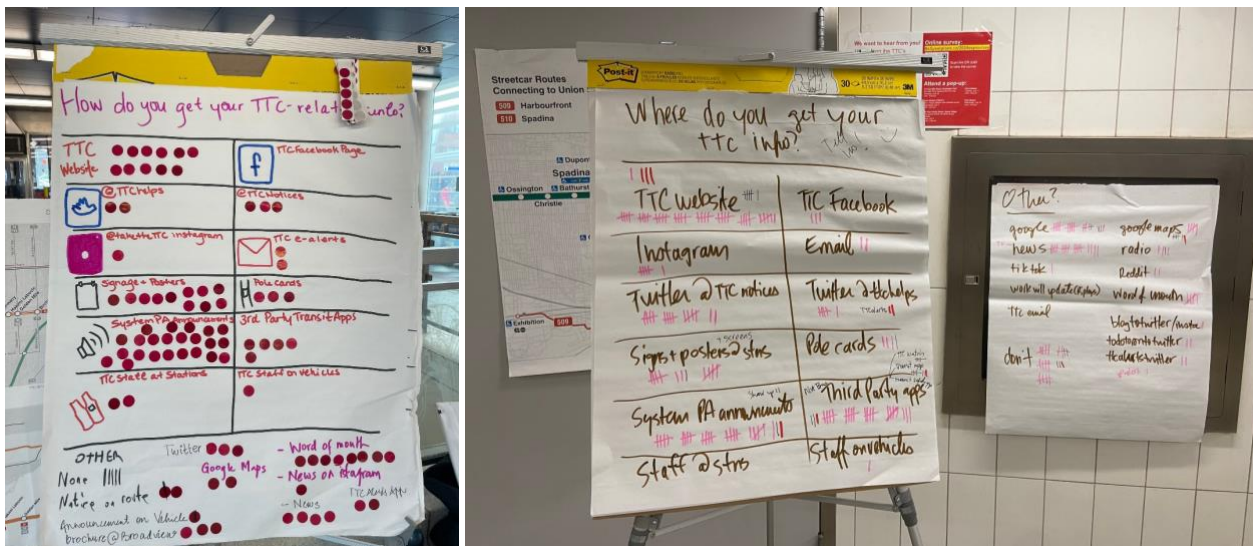 How do you get your TTC-related info?
TTC Website
TTC Facebook Page
@TTChelps
@TTCNotices
@taketheTTC instagram
TTC e-alerts
Signage + Posters
Pole cards
System PA Announcements
3rd Party Transit Apps
TTC Staff at Stations
TTC Staff on Vehicles
OTHER
None
Notice on route
Announcement on Vehicle
brochure@Broadview
Twitter
Google Maps
- Word of month
- News on Instagram
- News
Streetcar Routes
Connecting to Union
509 Harbourfront
510 Spadina
Dupont
Spadina
Ossington
Bathurst
Christie
Exhibition
509
Post-it
30
3M
Where do you get your
TTC info?
TTC website
TTC Facebook
Instagram
Email
Twitter @ TTC notices
Twitter @ttchelps
Signs + posters @ stns
+ screens
Pole cards
System PA announcements
Third Party apps
Staff @ stns
Staff on vehicles
We want to hear from you!
Online survey:
Attend a pop-up:
Other?
google
news
tiktok
TTC email
don't
google maps
radio
Reddit
Word of mouth
blogto twitter/insta
todotoronto twitter
ttcalerts twitter